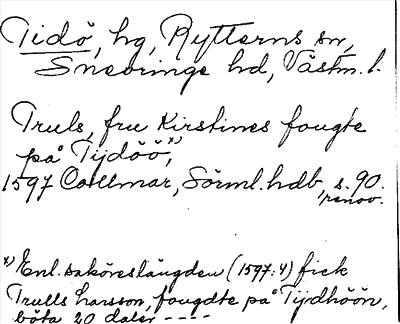 Tidö, hg, Rytterns sn,
Snevringe hd, Västm. l.
Truls, fru Kirstines fougte
på Tijdöö,x)
1597 Callmar, Sörml. hdb, s. 90.
renov.
x) Enl. saköreslängden (1597:4) fick
Trulls Larsson, fougdte på Tijdhöön,
böta 20 daler ----